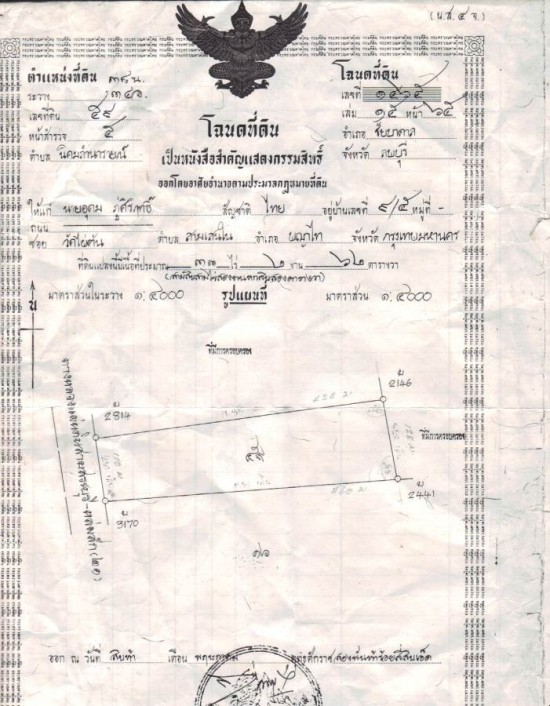 (น.ส. ๔ จ.)
ตำแหน่งที่ดิน
ระวาง
เลขที่ดิน ๕๙
หน้าสำรวจ
ตำบล นิคมลำนารายณ์
โฉนดที่ดิน
เลขที่
เล่ม ๑๕ หน้า ๖๕
อำเภอ ชัยบาดาล
จังหวัด ลพบุรี
โฉนดที่ดิน
เป็นหนังสือสำคัญแสดงกรรมสิทธิ์
ออกโดยอาศัยอำนาจตามประมวลกฎหมายที่ดิน
ให้แก่ นายอุดม สัญชาติ ไทย อยู่บ้านเลขที่ ๙/๕ หมู่ที่ -
ถนน
ซอย วัดไผ่ตัน ตำบล สามเสนใน อำเภอ พญาไท จังหวัด กรุงเทพมหานคร
ที่ดินแปลงนี้มีเนื้อที่ประมาณ ไร่ ๒ งาน ๖๒ ตารางวา
มาตราส่วนในระวาง ๑:๔๐๐๐ รูปแผนที่ มาตราส่วน ๑:๔๐๐๐
น
ที่มีการครอบครอง
2146
2814
ที่มีการครอบครอง
๕๙
2441
3170
๗๖
ออก ณ วันที่ สิบห้า เดือน พฤษภาคม พุทธศักราช สองพันห้าร้อยสี่สิบเอ็ด